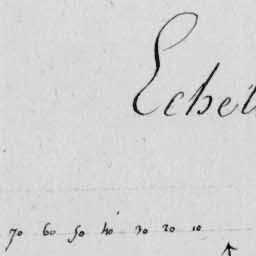 Echel
70 60 50 40 30 20 10